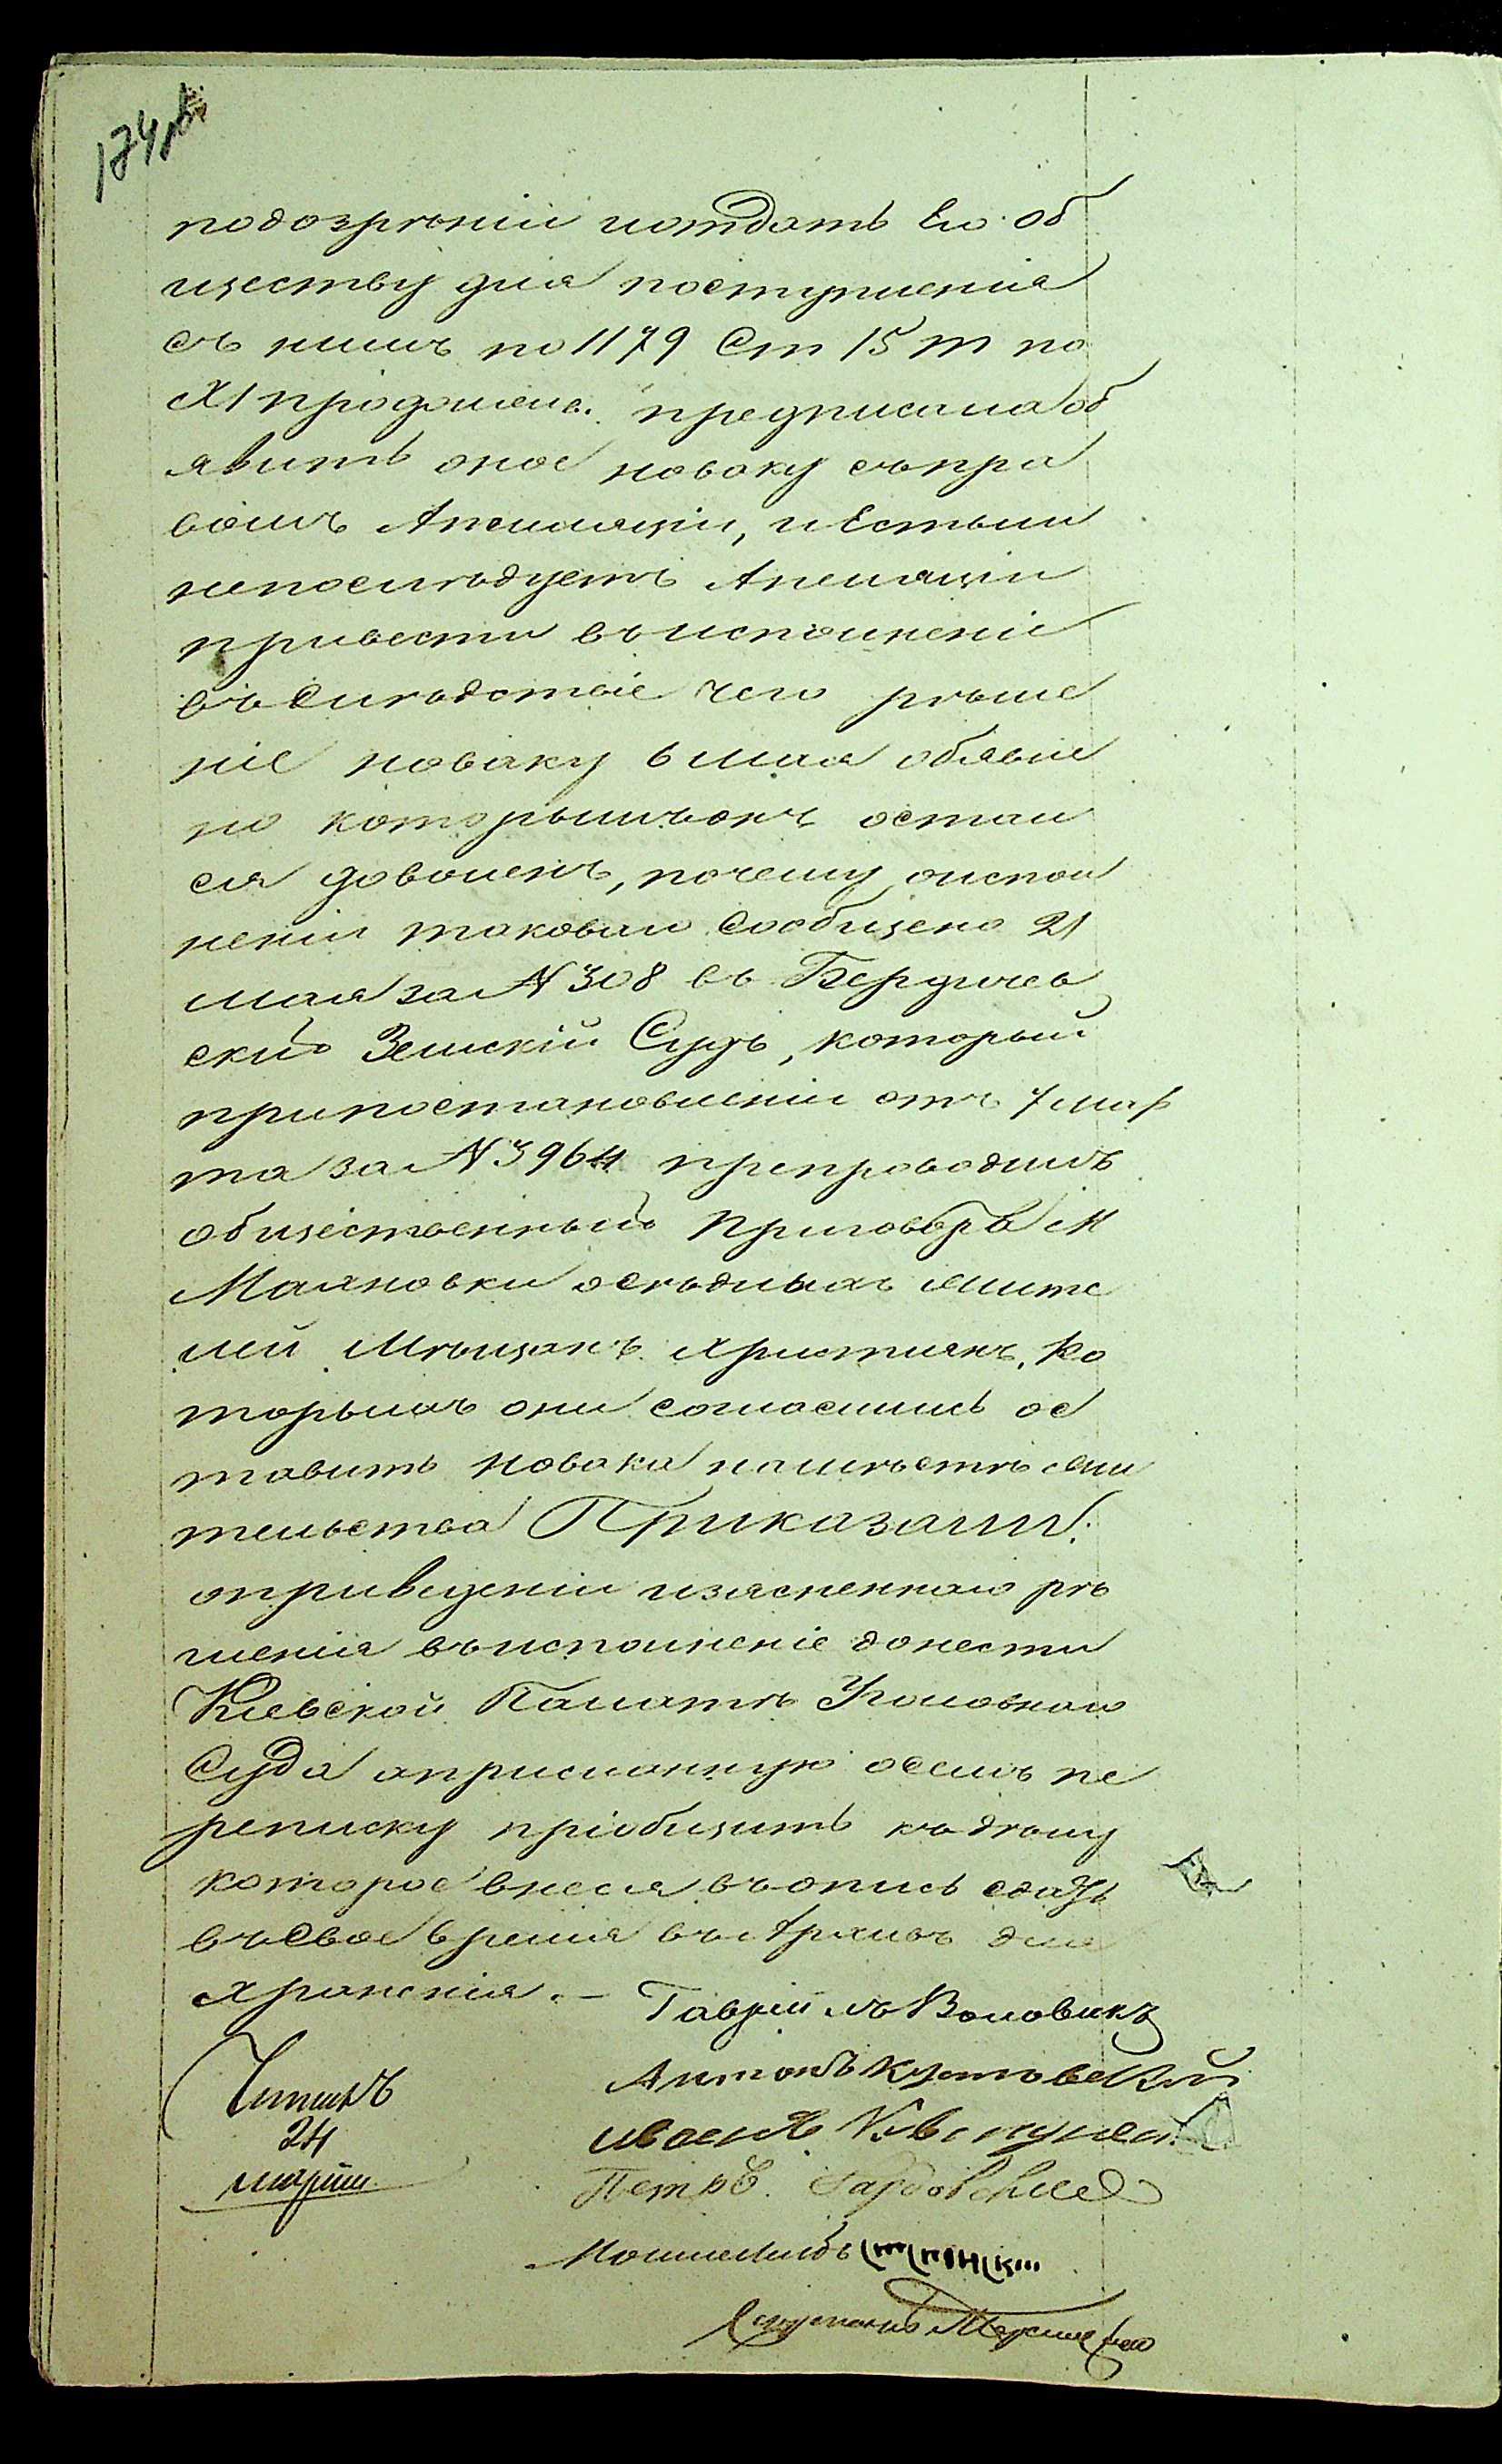 подозрѣніи иотдать Его об
ществу для поступленія
съ нимъ по 1179 Ст 15 т по
XI продолжен. предписала об
явить оное новаку съпра
вомъ Апелляціи, и Естьли
непослѣдуетъ Апеляціи
привести въисполненіе
въСлѣдствіе чего рѣше
ніе новаку 6 мая обявле
но которымъонъ остал
ся доволенъ, почему оиспол
неніи таковаго Сообщено 21
мая за N 308 въ Бердичев
скій Земскій Судъ, который
припостановленіи отъ 7 мар
та за N 3964 препроводилъ
общественный Приговоръ М
Махновки осѣдлыхъ жите
лей Мѣщанъ Христіянъ, Ко
торымъ они согласились ос
тавить новака намѣстѣ жи
тельства Приказали:
оприведеніи изясненнаго рѣ
шенія въисполненіе донести
Кіевской Палатѣ Уголовнаго
Суда априсланную осемъ пе
реписку пріобщить къдѣлу
которое внеся въопись сдать
въСвое время въАрхивъ для
храненія. –
Гавріилъ Воловикъ
Антонъ
Читалъ
24
Петръ